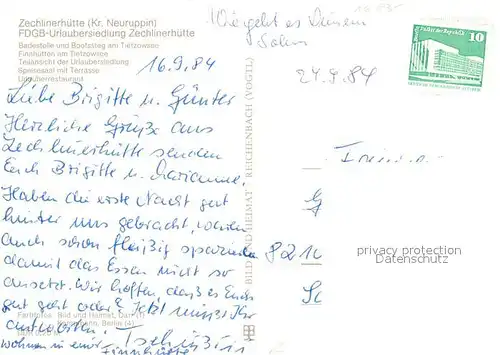 Zechlinerhütte (Kr. Neuruppin)
FDGB-Urlaubersiedlung Zechlinerhütte
Badestelle und Bootssteg am Tietzowsee
Finnhütten am Tietzowsee
Teilansicht der Urlaubersiedlung
Speisesaal mit Terrasse
Urlauberrestaurant
Wie geht es Deinem
Sohn
16.9.84
24.9.84
Liebe Brigitte u. Günter
Herzliche Grüße aus
Zechlinerhütte senden
Euch Brigitte u. Marianne.
Haben die erste Nacht gut
hinter uns gebracht, waren
auch schon fleißig spazieren
damit das Essen nicht so
ansetzt. Wir hoffen daß es Euch
gut geht oder? Jetzt müßt Ihr
antworten. Tschüß
wohnen in einer Finnhütte
BILD UND HEIMAT REICHENBACH (VOGTL)
10
Palast der Republik
DDR
Familie
G
8210
privacy protection
Datenschutz